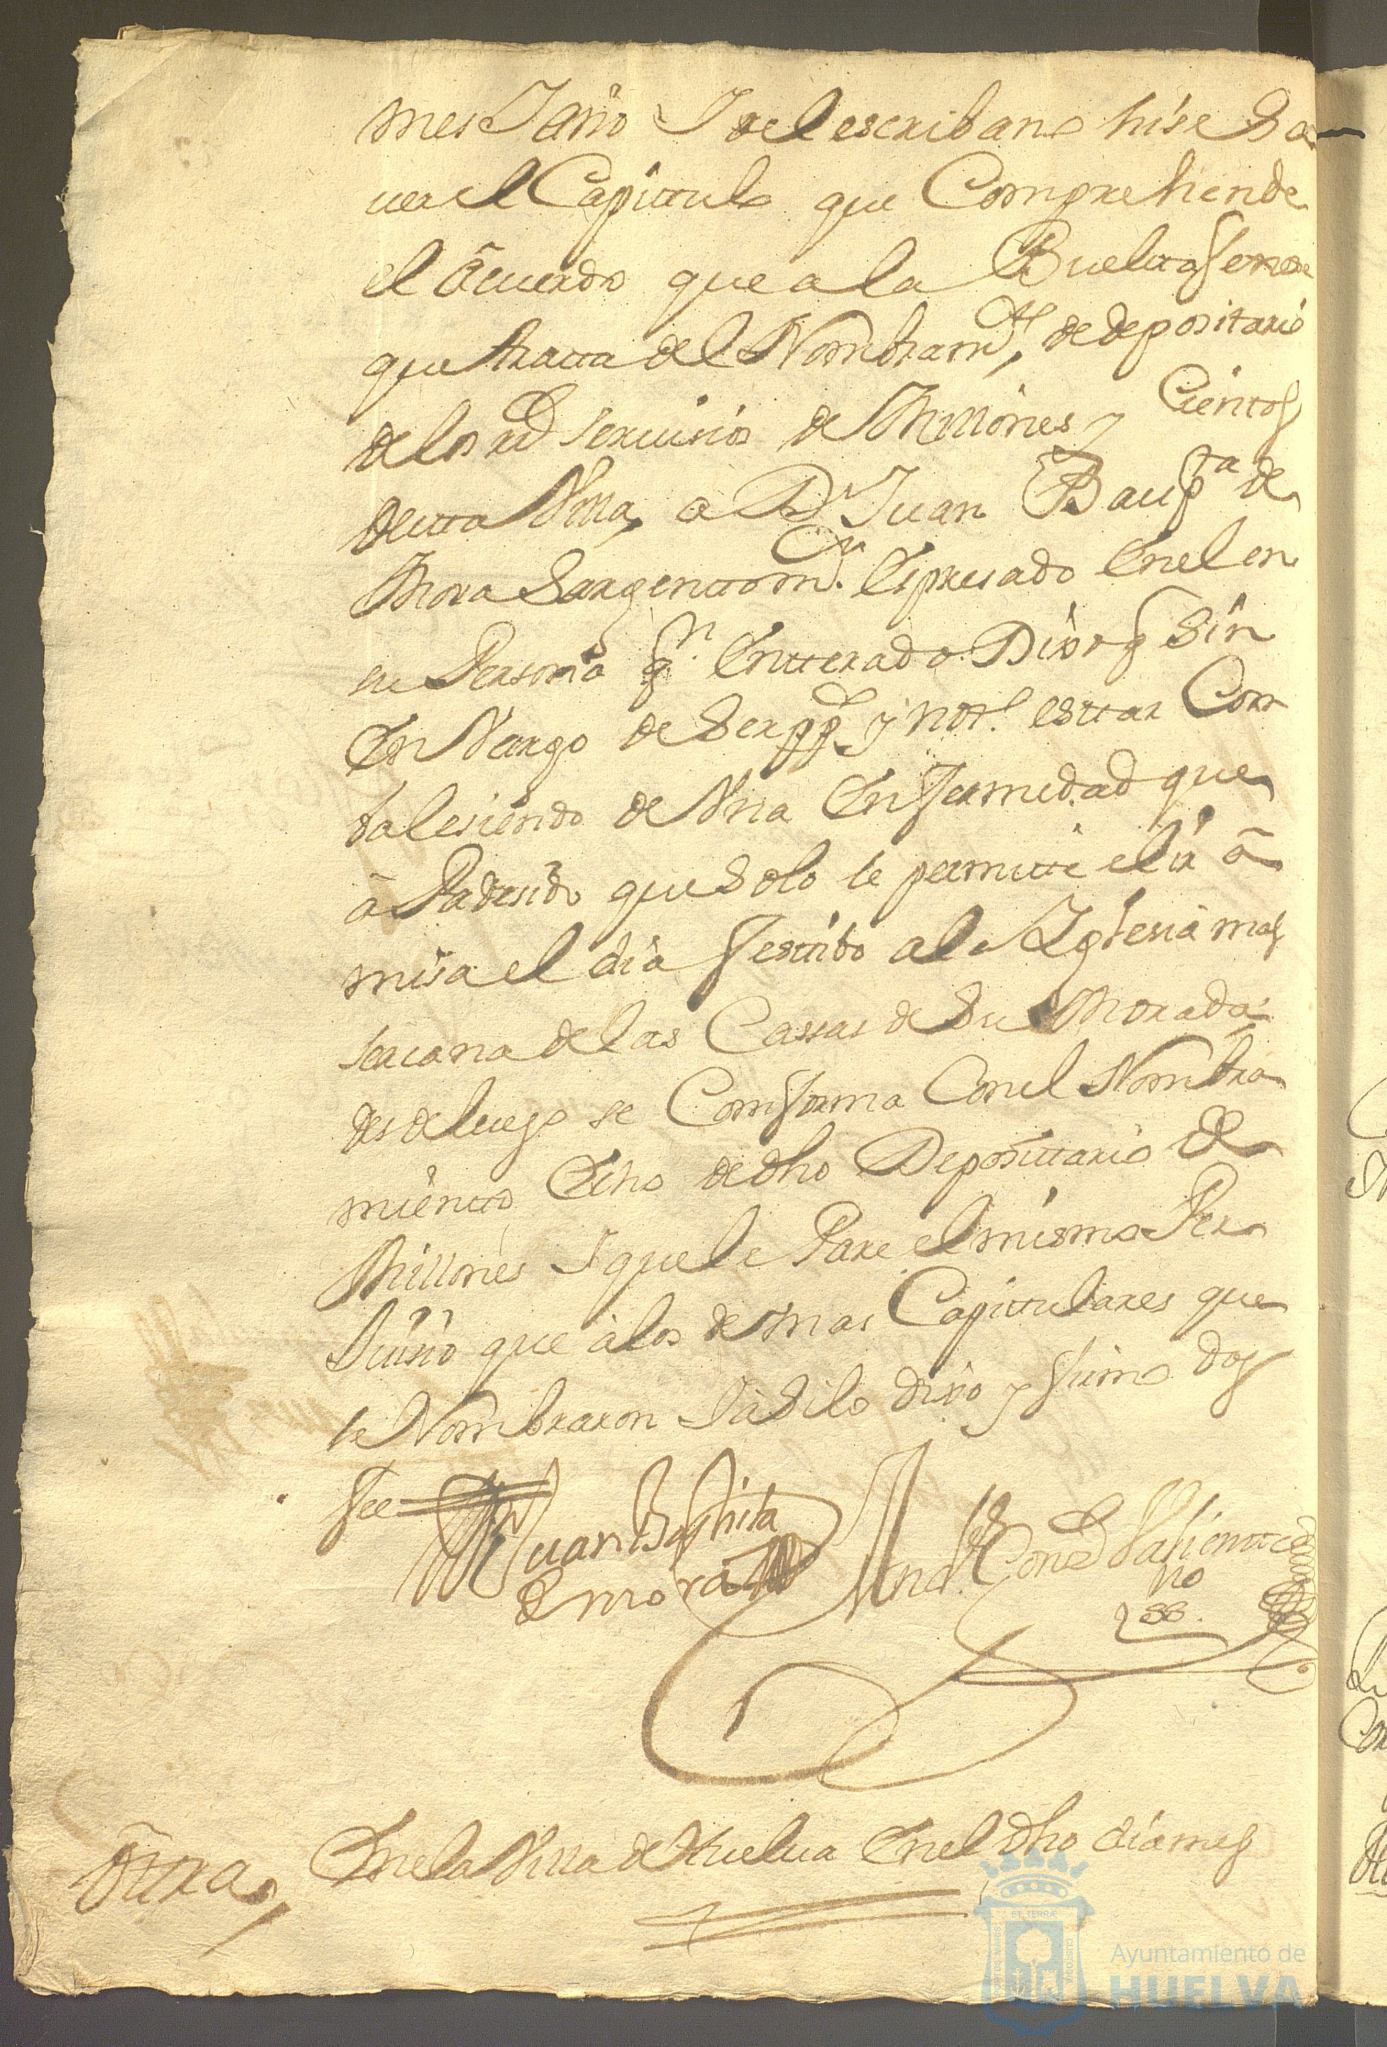 mes Jaño Jo el escribano hise Sa
uer el Capittulo que Comprehende
el Acuerdo que a la Buelta
que tratta del Nombram.to de depositario
de los rs seruisios de Millones y Cientos
de esta Villa, a Dn Juan Baupta de
Mora Sargentto mr. Espresado En el en
su Persona qn. Entterado Dixo q Sin
En Vargo de y estar Com
balesiendo de Vna Enfermedad que
a Padesido que Solo le permitte el ir a
misa el dia festibo a la Yglesia mas
sercana de las Cassas de Su Morada
desde luego se Comforma Con el Nombra
miento Echo de dho Deposittario de
Millones J que le Pare el mismo Per
Juisio que a los de mas Capittulares que
le Nombraron J asi lo dixo y firmo doy
fee
Juan Baphtita
de mora
Gonz Valiente
no
Ottra,
En la Villa de Huelua En el dho dia mes
Ayuntamiento de
HUELVA